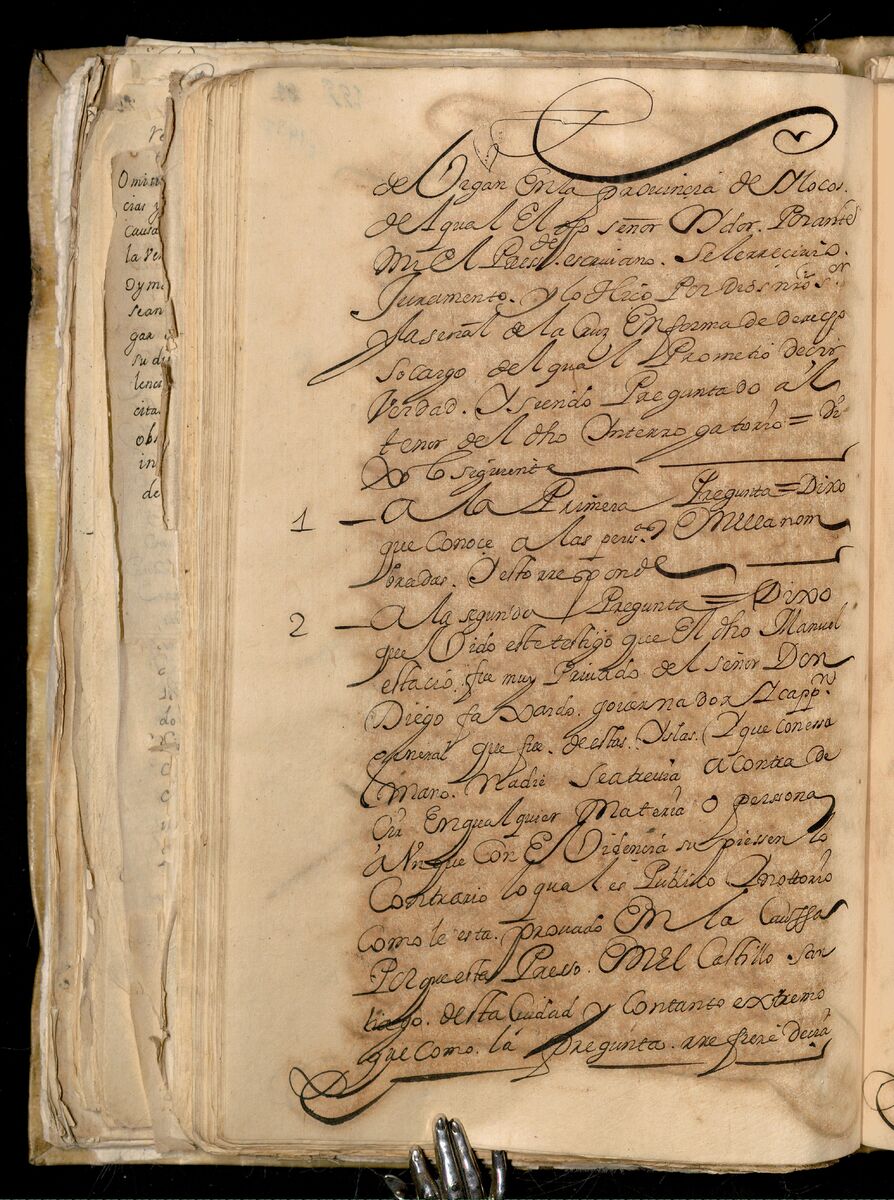 de Vigan En la prouinçia de Ylocos.
del qual El dho señor Oydor. Por ante
mi el Press.te escriuano. Se le rreciuio.
Juramento. y lo Hiço Por dios nr̃o S.or
y la señal de la Cruz En forma de derecho
so cargo del qual Prometio decir
Verdad. Y siendo Preguntado al
tenor del dho Ynterrogatorio = di
xo lo siguiente
1 — A la Primera Pregunta = Dixo
que conoce a las perss.as En ella nom
bradas. Y esto rresponde
2 — A la segunda Pregunta = Dixo
que Vido este testigo que El dho Manuel
estacio. fue muy Priuado del señor Don
Diego faxardo. gouernador Y capp.n
general que fue. de estas. Yslas. Y que con essa
mano. nadie se atreuia a contra de
cir En qualquier Materia o persona
aVnque con EVidencia supiessen lo
Contrario lo qual es Publico Y nottorio
Como le esta. prouado En la Caussa
Por que esta Presso. En El Castillo san
tiago. de esta Ciudad y con tanto extremo
que como. la pregunta. rrefiere decia
Omiti
cias y
Causa
la Ve
su di
cita
obs
in
de